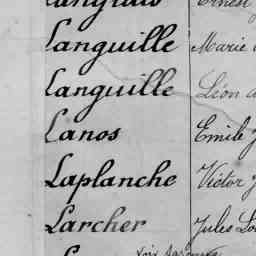 Languille Marie
Languille Léon
Lanos Emile J
Laplanche Victor J
Larcher Jules Lou